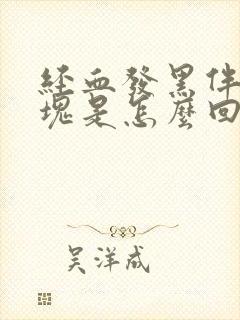 經血發黑伴
塊是怎麼回
吴洋成